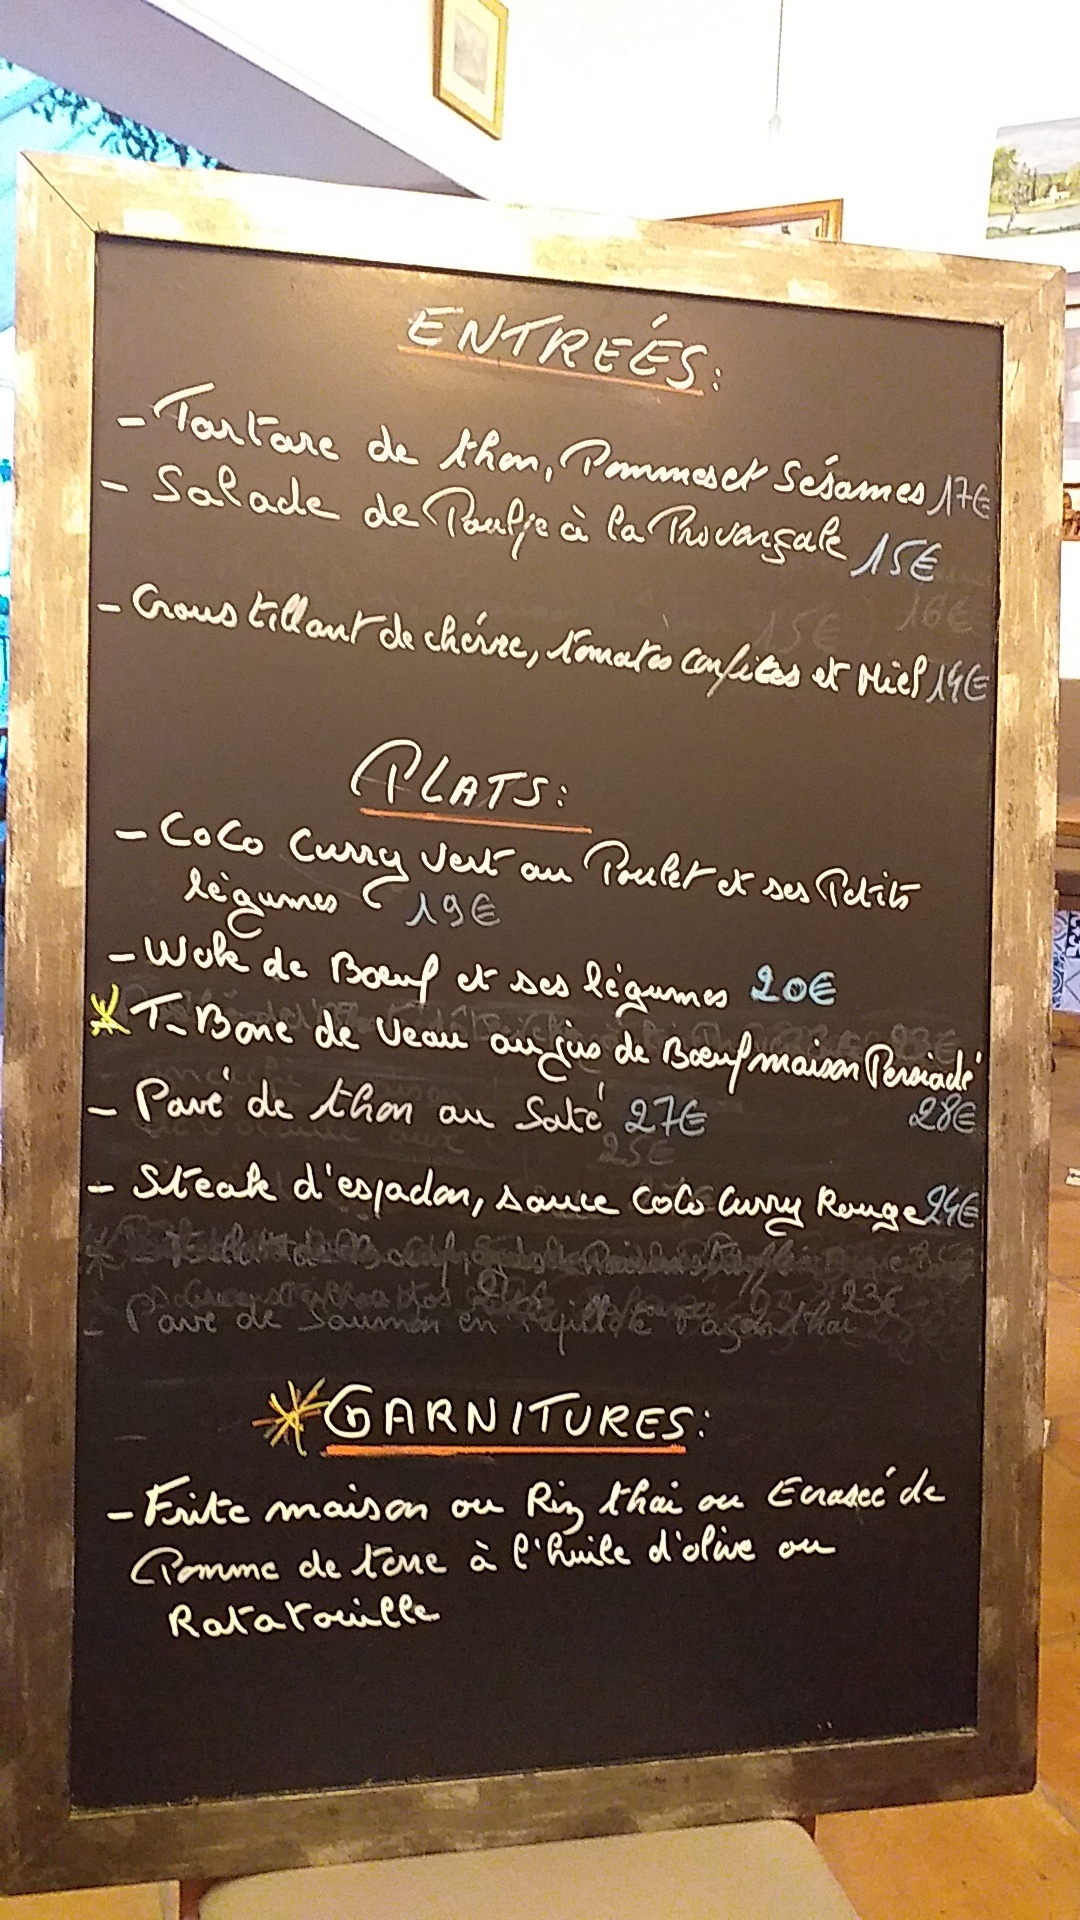 ENTREÉS:
- Tartare de thon, Pommes et Sésames 17€
- Salade de Poulpe à la Provençale 15€
16€
15€
- Croustillant de chèvre, tomates confites et Miel 14€
PLATS:
- CoCo Curry Vert au Poulet et ses Petits
légumes 19€
- Wok de Boeuf et ses légumes 20€
* T-Bone de Veau au jus de Boeuf maison Persiadé
28€
- Pavé de thon au Saté 27€
25€
- Steak d'espadon, sauce CoCo Curry Rouge 24€
23€
- Pavé de Saumon en thai
*GARNITURES:
- Frite maison ou Riz thai ou Ecrasée de
Pomme de terre à l'huile d'olive ou
Ratatouille